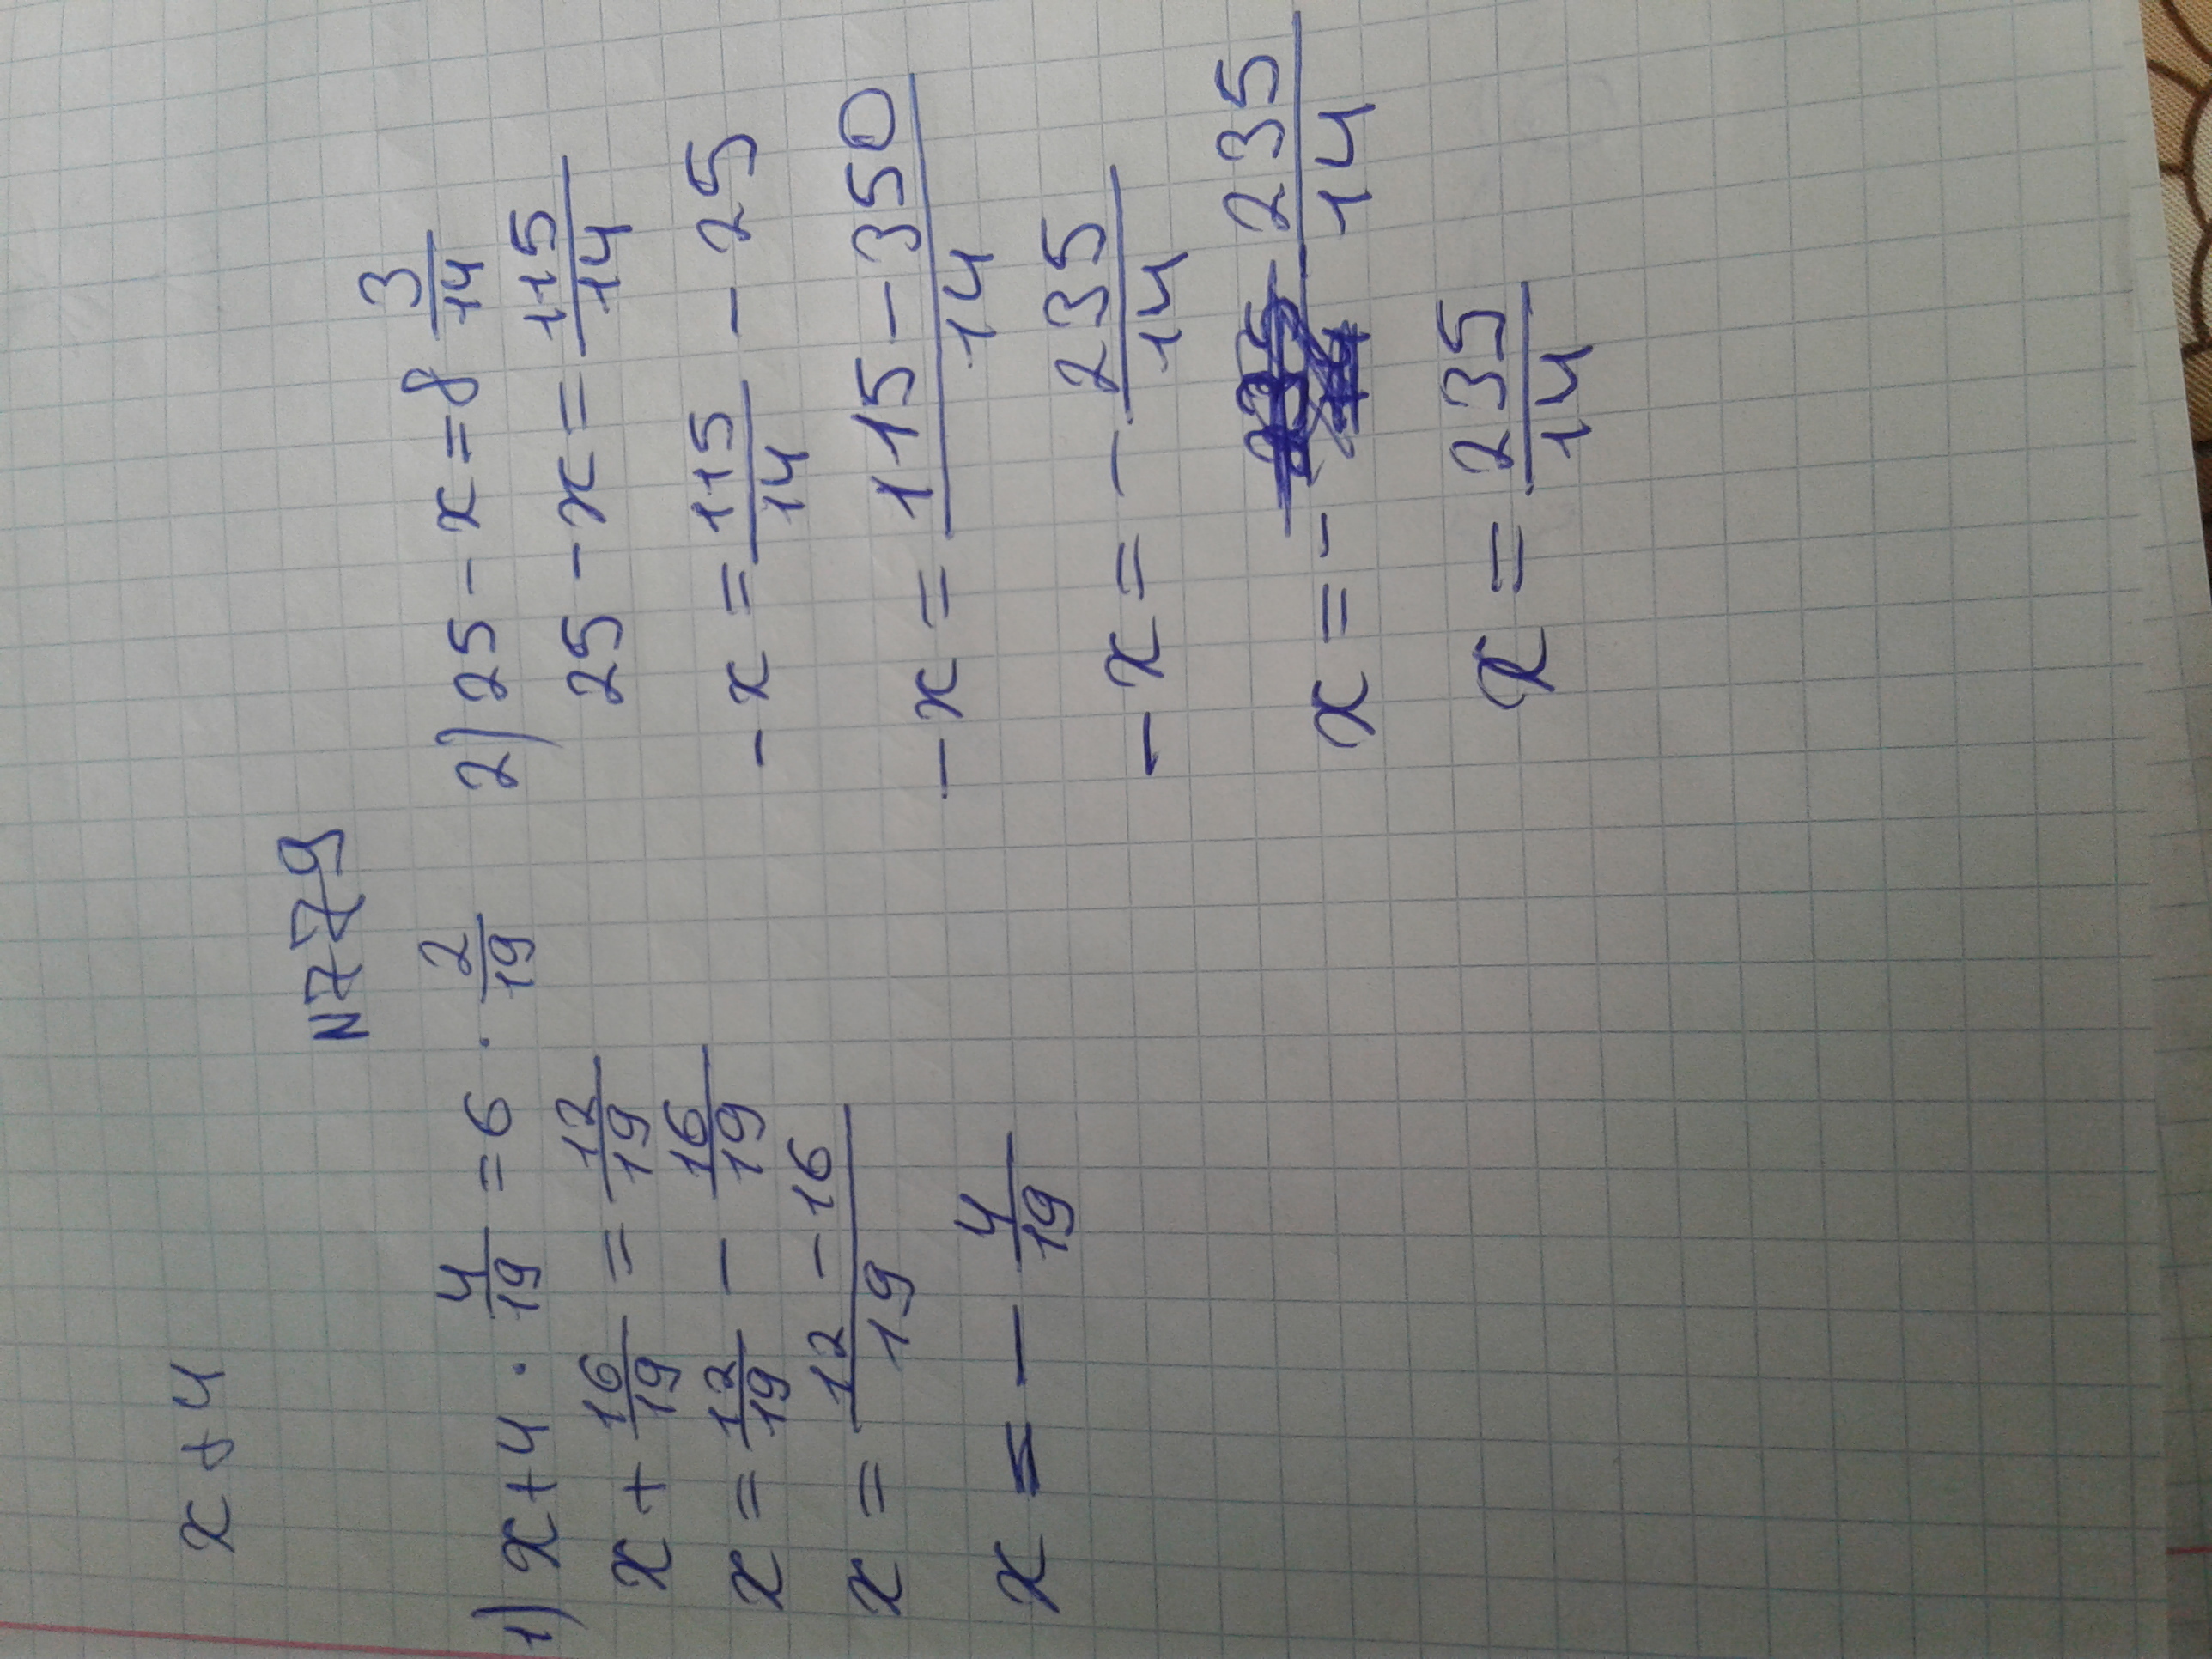 x + 4
N779
1) x + 4 · 4/19 = 6 · 2/19
x + 16/19 = 12/19
x = 12/19 - 16/19
x = (12 - 16)/19
x = - 4/19
2) 25 - x = 8 3/14
25 - x = 115/14
- x = 115/14 - 25
- x = (115 - 350)/14
- x = - 235/14
x = - 235/14
x = 235/14